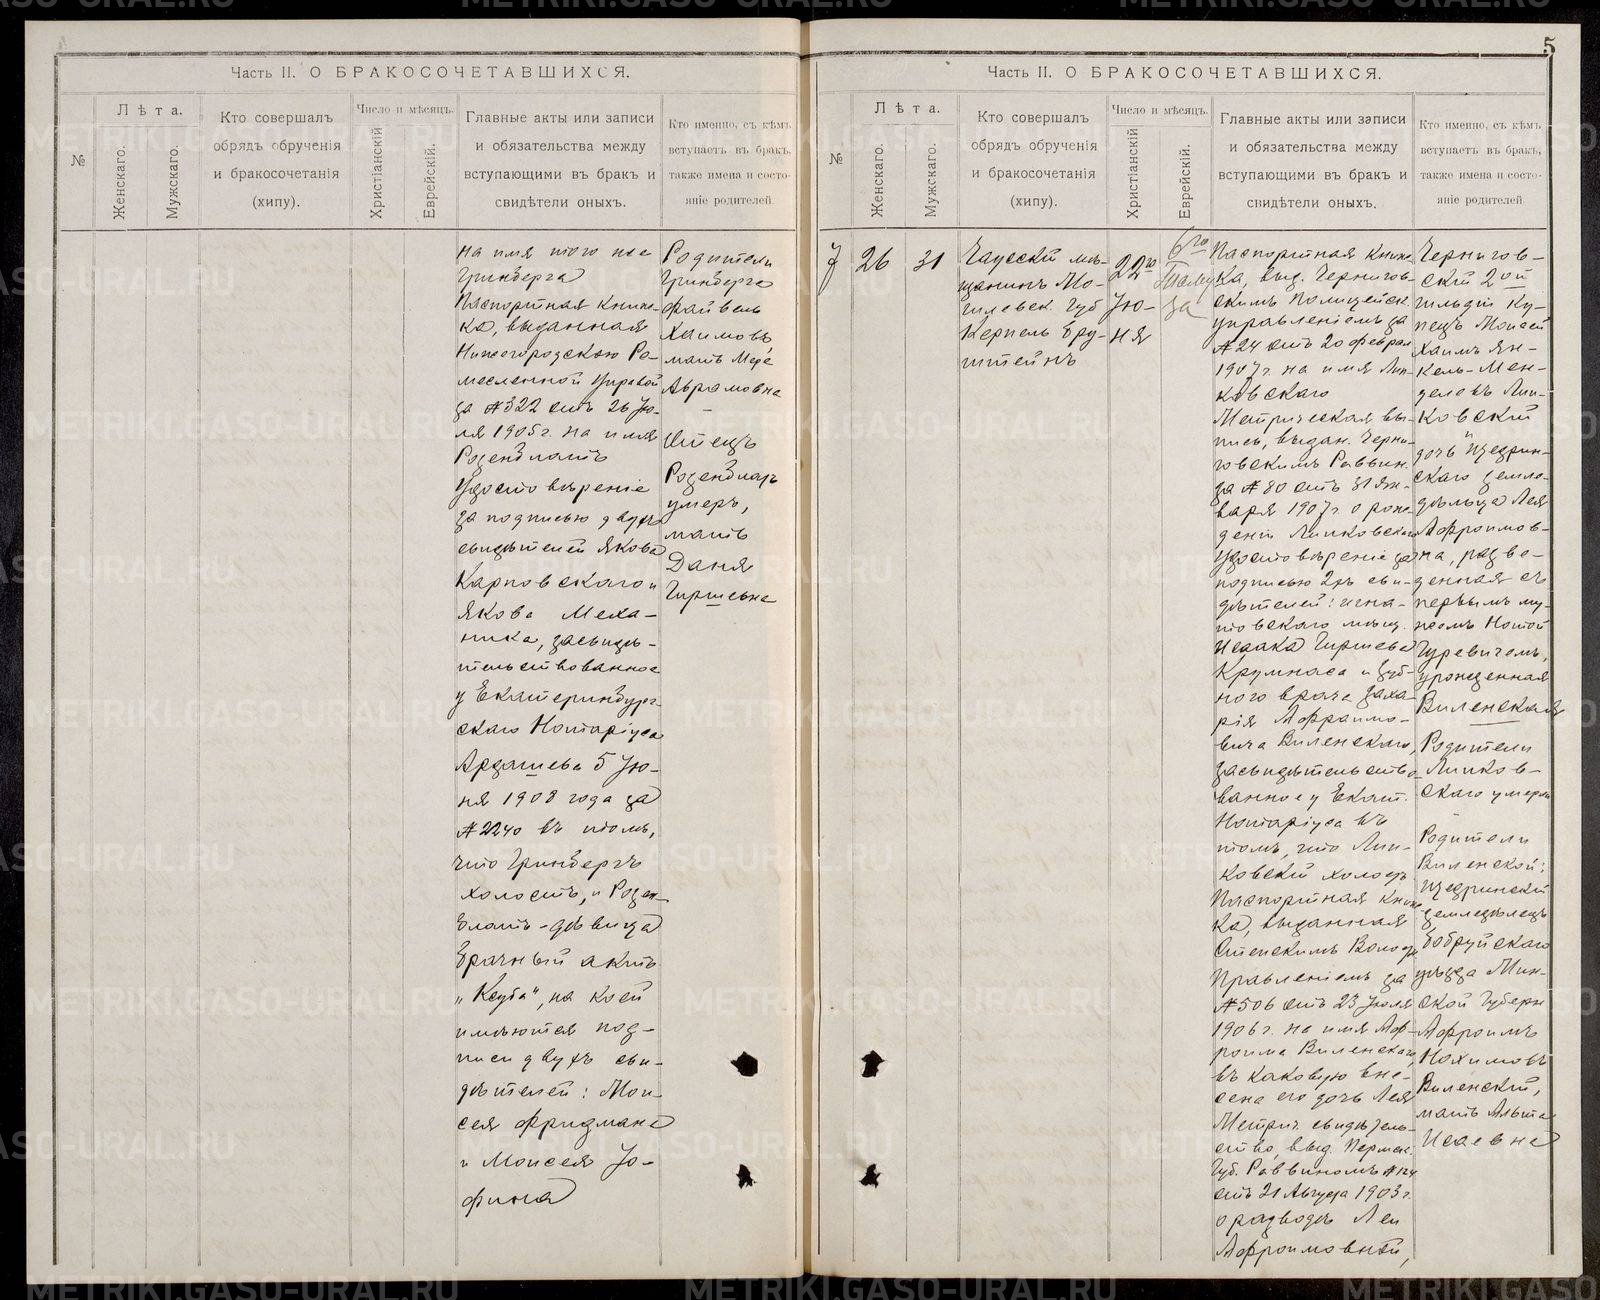 Часть II. О БРАКОСОЧЕТАВШИХСЯ.
№
Лѣта.
Женскаго.
Мужскаго.
Кто совершалъ
обрядъ обрученія
и бракосочетанія
(хипу).
Число и мѣсяцъ.
Христіанскій
Еврейскій.
Главные акты или записи
и обязательства между
вступающими въ бракъ и
свидѣтели оныхъ.
Кто именно, съ кѣмъ
вступаетъ въ бракъ,
также имена и состо-
яніе родителей
на имя того же
Гринберга
Паспортная книж-
ка, выданная
Нижегородскою Ре-
месленной Управой
за №322 отъ 26 Ію-
ля 1905г. на имя
Розенблатъ
Удостовѣреніе
за подписью двухъ
свидѣтелей Якова
Карповскаго и
Якова Меха-
ника, засвидѣ-
тельствованное
у Екатеринбург-
скаго Нотаріуса
Ардашева 5 Ію-
ня 1908 года за
№2240 въ томъ,
что Гринбергъ
холостъ, и Розен-
блатъ - дѣвица
Брачный актъ
„Ксуба", на коей
имѣются под-
писи двухъ сви-
дѣтелей: Мои-
сея Фридмана
и Моисея Іо-
фина
Родители
Гринберга
Файвель
Хаимовъ,
мать Мере
Абрамовна
Отецъ
Розенблатъ
умеръ,
мать
Даня
Гиршевна
5
Часть II. О БРАКОСОЧЕТАВШИХСЯ.
№
Лѣта.
Женскаго.
Мужскаго.
Кто совершалъ
обрядъ обрученія
и бракосочетанія
(хипу).
Число и мѣсяцъ.
Христіанскій
Еврейскій.
Главные акты или записи
и обязательства между
вступающими въ бракъ и
свидѣтели оныхъ.
Кто именно, съ кѣмъ
вступаетъ въ бракъ,
также имена и состо-
яніе родителей
7
26
31
Чаусскій мѣ-
щанинъ Мо-
гилевск. Губ
Керпель Бру-
штейнъ
22го
Ію-
ня
6го
Таму
за
Паспортная книж
ка, выд. Чернигов-
скимъ Полицейск.
управленіемъ за
№24 отъ 20 феврал
1907г. на имя Лип-
ковскаго
Метрическая вы-
пись, выдан. Черни-
говскимъ Раввин.
за №80 отъ 31 ян-
варя 1907г. о рож-
деніи Липковскаго
Удостовѣреніе за
подписью 2хъ сви-
дѣтелей: игна-
товскаго мѣщ.
Исаака Гиршева
Кримнаса и зуб-
ного врача Заха-
рія Афраимо-
вича Виленскаго,
засвидѣтельство-
ванное у Екат.
Нотаріуса въ
томъ, что Лип-
ковскій холостъ
Паспортная книж
ка, выданная
Волостн
Правленіемъ за
№506 отъ 23 Іюля
1906г. на имя Аф-
роима Виленскаго,
въ каковую вне-
сена его дочь Лея
Метрич. свидѣтель-
ство, выд. Пермск.
Губ. Раввиномъ
отъ 21 Августа 1903г.
о разводѣ Леи
Афроимовны,
Чернигов-
скій 2ой
гильдіи ку-
пецъ Моисей
Хаимъ Ян-
кель-Мен-
делевъ Лип-
ковскій
дочь Щедрин-
скаго земле-
дѣльца Лея
Афроимов-
на, разве-
денная съ
первымъ му-
жемъ Нотой
Гуревичемъ,
урожденная
Виленская
Родители
Липков-
скаго умерли
Родители
Виленской:
Щедринскій
земледѣлецъ
Бобруйскаго
уѣзда Мин-
ской Губерн
Афроимъ
Нохимовъ
Виленскій,
мать Альта
Исаевна
METRIKI.GASO-URAL.RU